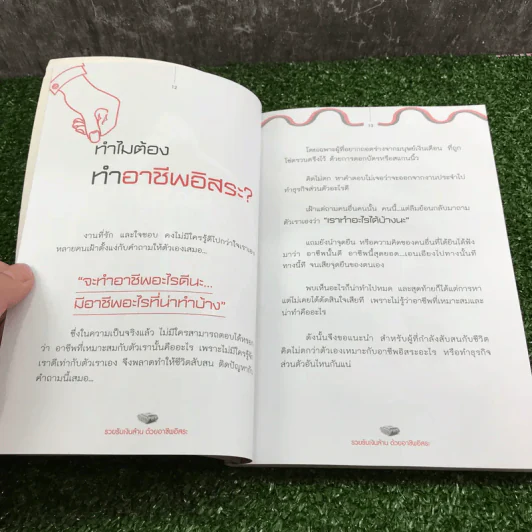 12
ทำไมต้อง
ทำอาชีพอิสระ?
งานที่รัก และใจชอบ คงไม่มีใครรู้ดีไปกว่าใจเรา
หลายคนเฝ้าตั้งแง่กับคำถามให้ตัวเองเสมอ...
“จะทำอาชีพอะไรดีนะ...
มีอาชีพอะไรที่น่าทำบ้าง”
ซึ่งในความเป็นจริงแล้ว ไม่มีใครสามารถตอบได้
ว่า อาชีพที่เหมาะสมกับตัวเรานั้นคืออะไร เพราะไม่มีใครรู้จัก
เราดีเท่ากับตัวเราเอง จึงพลาดทำให้ชีวิตสับสน ติดปัญหากับ
คำถามนี้เสมอ...
รวยรับเงินล้าน ด้วยอาชีพอิสระ
13
โดยเฉพาะผู้ที่อยากถอดร่างจากมนุษย์เงินเดือน ที่ถูก
ใส่ตรวนตรึงไว้ ด้วยการตอกบัตรหรือสแกนนิ้ว
คิดไม่ตก หาคำตอบไม่เจอว่าจะออกจากงานประจำไป
ทำธุรกิจส่วนตัวอะไรดี
เฝ้าแต่ถามคนอื่นคนนั้น คนนี้...แต่ลืมย้อนกลับมาถาม
ตัวเราเองว่า “เราทำอะไรได้บ้างนะ”
แถมยังนำจุดยืน หรือความคิดของคนอื่นที่ได้ยินได้ฟัง
มาว่า อาชีพนั้นดี อาชีพนี้สุดยอด...เอนเอียงไปทางนั้นที
ทางนี้ที จนเสียจุดยืนของตนเอง
พบเห็นอะไรก็น่าทำไปหมด และสุดท้ายก็ได้แต่การหา
แต่ไม่เคยได้ตัดสินใจเสียที เพราะไม่รู้ว่าอาชีพที่เหมาะสมและ
น่าทำคืออะไร
ดังนั้นจึงขอแนะนำ สำหรับผู้ที่กำลังสับสนกับชีวิต
คิดไม่ตกว่าตัวเองเหมาะกับอาชีพอิสระอะไร หรือทำธุรกิจ
ส่วนตัวอันไหนกันแน่
รวยรับเงินล้าน ด้วยอาชีพอิสระ